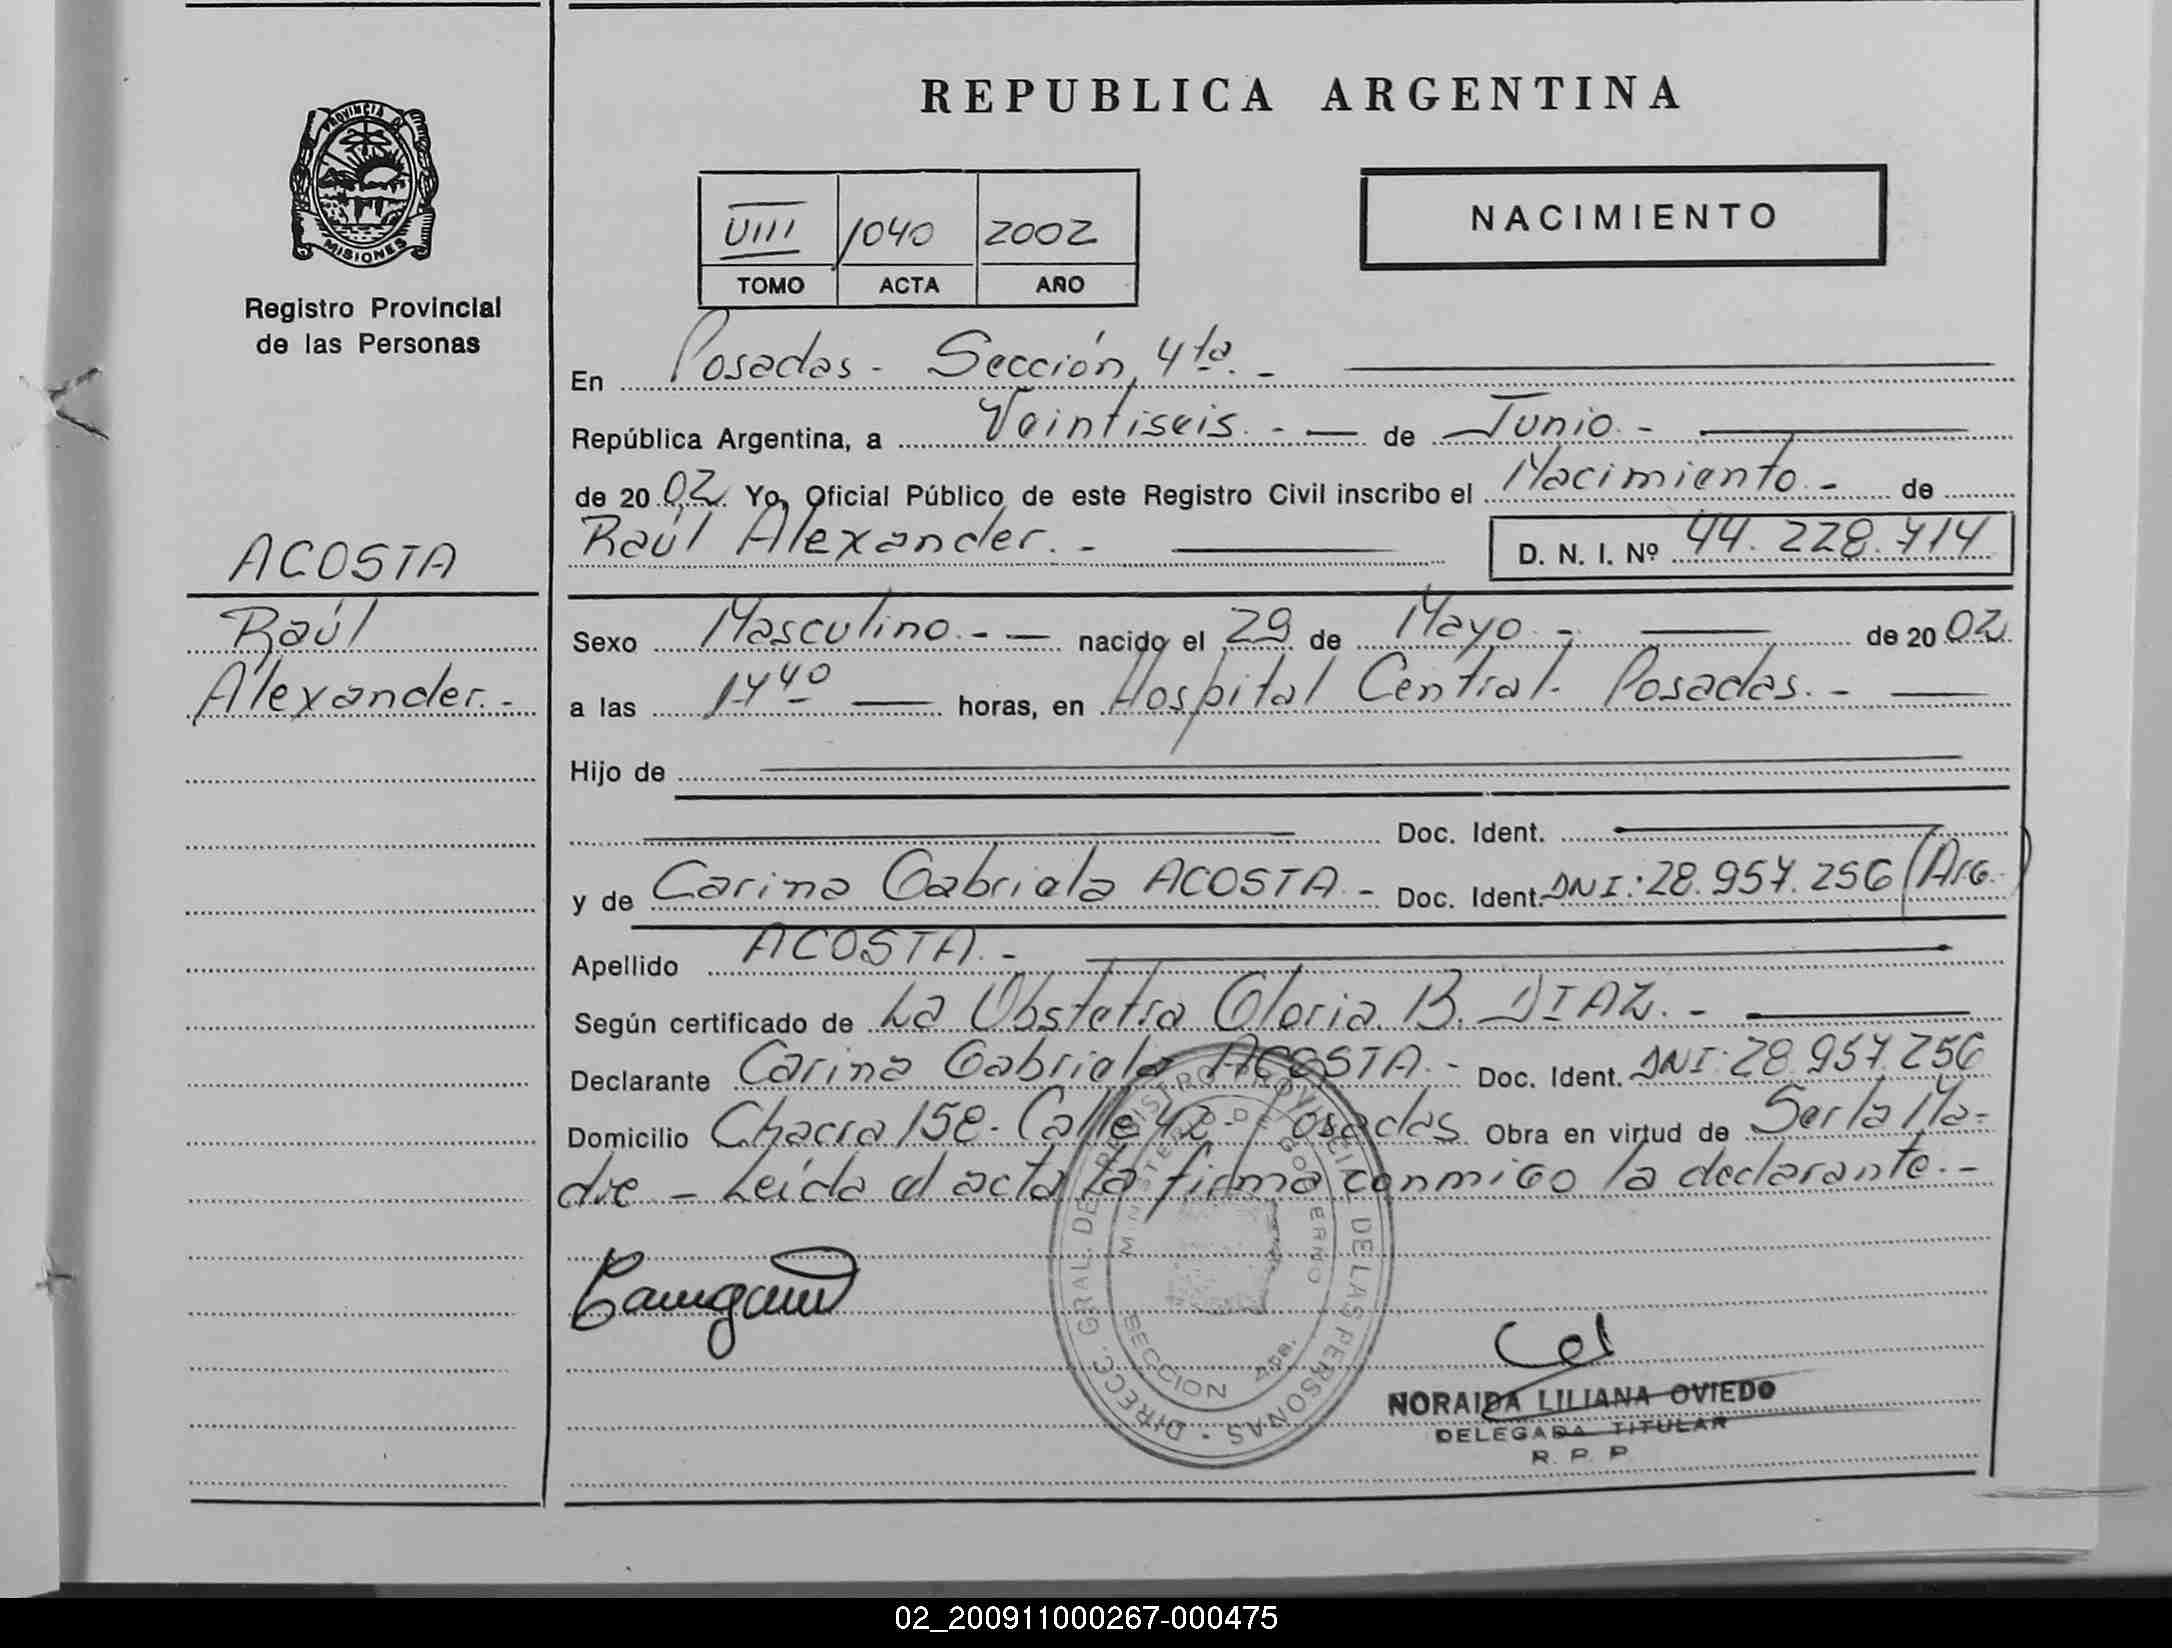 REPUBLICA ARGENTINA
PROVINCIA DE
MISIONES
Registro Provincial
de las Personas
VIII 1040 2002
TOMO ACTA AÑO
NACIMIENTO
En Posadas - Sección 4ta. -
República Argentina, a Veintiseis. - de Junio. -
de 20 02 Yo, Oficial Público de este Registro Civil inscribo el Nacimiento. - de
Raúl Alexander. - D. N. I. Nº 44.228.414
ACOSTA
Raúl
Alexander. -
Sexo Masculino. - nacido el 29 de Mayo. - de 20 02
a las 1440 horas, en Hospital Central. Posadas. -
Hijo de
y Doc. Ident.
y de Carina Gabriela ACOSTA. - Doc. Ident. DNI: 28.957.256 (Arg.)
Apellido ACOSTA. -
Según certificado de La Obstetra Gloria B. DIAZ. -
Declarante Carina Gabriela ACOSTA. - Doc. Ident. DNI: 28.957.256
Domicilio Chacra 158. Calle 42 - Posadas Obra en virtud de Ser la Ma=
dre - Leída el acta la firma conmigo la declarante. -
DIRECC. GRAL. DE REGISTRO PROVINCIAL DE LAS PERSONAS
MINISTERIO DE GOBIERNO
SECCION 4ta.
NORAIDA LILIANA OVIEDO
DELEGADA TITULAR
R. P. P
02_200911000267-000475